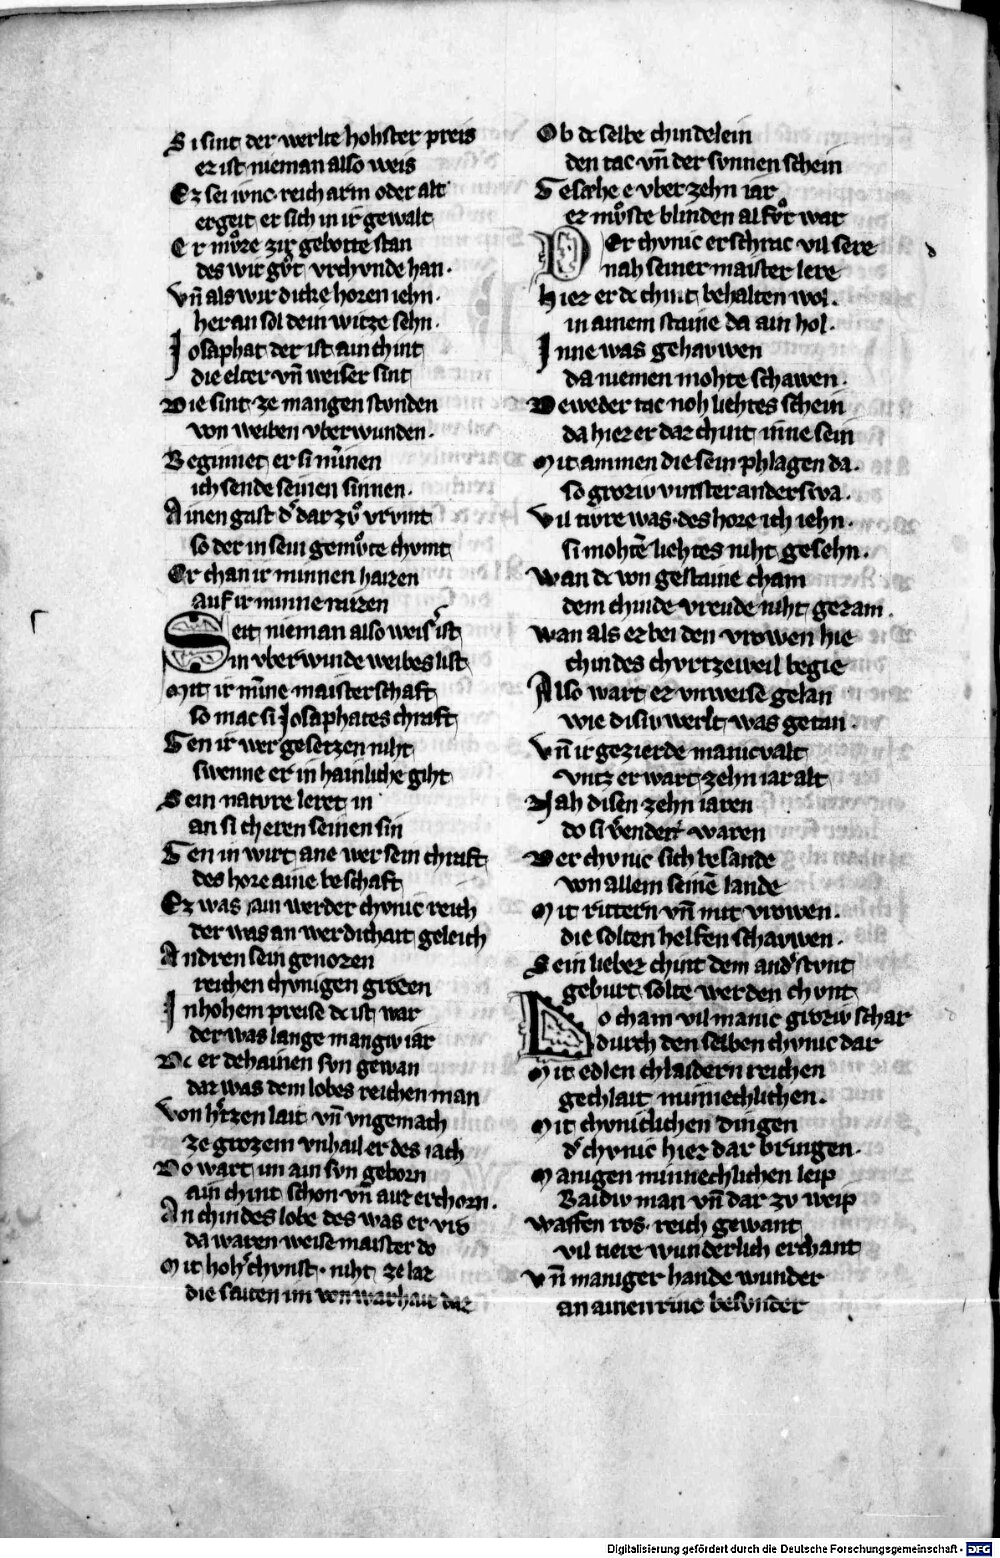 Si sint der werlte hohster preis
er ist nieman also weis
Ez sei iunc reich arm oder alt
ergeit er sich in ir gewalt
Er mvͦze zir gebotte stan
des wir gvͦt vrchvnde han·
Vn̄ als wir dicke horen iehn·
her an sol dein witze sehn·
Josaphat der ist ain chint
die elter vn̄ weiser sint
Die sint ze mangen stvnden
von weiben vberwunden·
Beginnet er si minnen
ich sende seinen sinnen·
Ainen gast d' dar zvͦ vrvmt
so der in sein gemvͦte chvmt
Er chan ir minnen haizen
auf ir minne raizen
Seit nieman also weis' ist
in vberwinde weibes list
Mit ir mīne maisterschaft
so mac si Josaphates chraft
Gen ir wer gesetzen niht
swenne er in hainliche giht
Sein natvre leret in
an si cheren seinen sin
Gen in wirt ane wer sein chraft
des hore aine beschaft
Ez was ain werder chvnic reich
der was an werdichait geleich
Andren sein genozen
reichen chvnigen grozen
In hohem preise dc ist war
der was lange mangiv iar
Dc er dehainen svn gewan
daz was dem lobes reichen man
Von h'tzen lait vn̄ vngemach
ze grozem vnhail er des iach
Do wart im ain svn geborn
ain chint schon vn̄ auz erchorn·
An chindes lobe des was er vro
da waren weise maister do
Mit hoh' chvnst· niht ze laz
die saiten im von warhait daz
Ob dc selbe chindelein
den tac vn̄ der svnnen schein
Gesæhe e vber zehn iar
ez mvͦste blinden al fvͦr war
Der chvnic erschrac vil sere
nah seiner maister lere
Hiez er dc chint behalten wol·
in ainem staine da ain hol·
Inne was gehavwen
da niemen mohte schawen·
Deweder tac noh liehtes schein
da hiez er daz chint inne sein
Mit ammen die sein phlagen da·
so groziv vinster anderswa·
Vil tivre was· des hore ich iehn·
si mohtē liehtes niht gesehn·
Wan dc von gestaine cham
dem chinde vreude niht gezam·
Wan als ez bei den vrowen hie
chindes chvrtzeweil begie
Also wart ez vnweise gelan
wie disiv werlt was getan
Vn̄ ir gezierde manicvalt
vntz er wart zehn iar alt
Nah disen zehn iaren
do si v'endet waren
Der chvnic sich besande
von allem seinē lande
Mit rittern vn̄ mit vrowen·
die solten helfen schavwen·
Sein lieber chint dem and' stvnt
geburt solte werden chvnt
Do cham vil manic groziv schar
durch den selben chvnic dar
Mit edlen chlaidern reichen
gechlait minnechlichen·
Mit chvniclichen dingen
d' chvnic hiez dar bringen·
Manigen minnechlichen leip
Baidiv man vn̄ dar zv weip
Waffen ros· reich gewant
vil tiere wunderlich erchant
Vn̄ maniger hande wunder
an ainen rinc besvnder
Digitalisierung gefördert durch die Deutsche Forschungsgemeinschaft - DFG